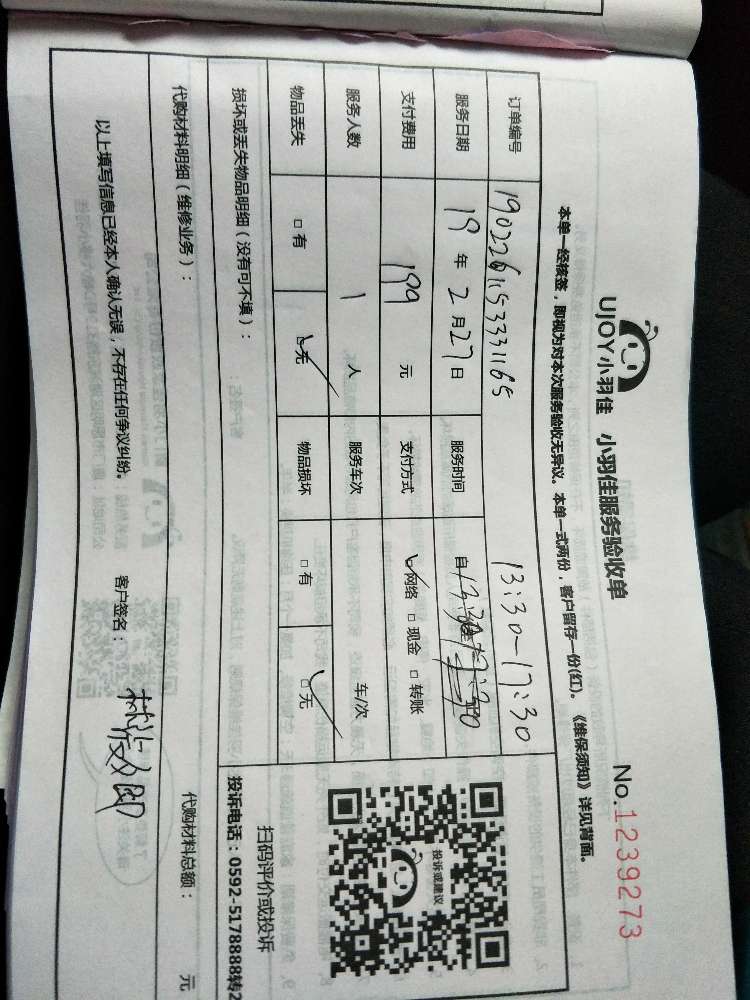 UJOY小羽佳 小羽佳服务验收单
No.1239273
本单一经核签，即视为对本次服务验收无异议。本单一式两份，客户留存一份(红)。《维保须知》详见背面。
订单编号 190226115333165 13:30-17:30
服务日期 19年2月27日 服务时间 自
支付费用 199 元 支付方式 网络 □现金 □转账
服务人数 1 人 服务车次 车/次
物品丢失 □有 无 物品损坏 □有 □无
损坏或丢失物品明细（没有可不填）：
代购材料明细（维修业务）： 代购材料总额： 元
以上填写信息已经本人确认无误，不存在任何争议纠纷。 客户签名：
投诉或建议
扫码评价或投诉
投诉电话：0592-5178888转2